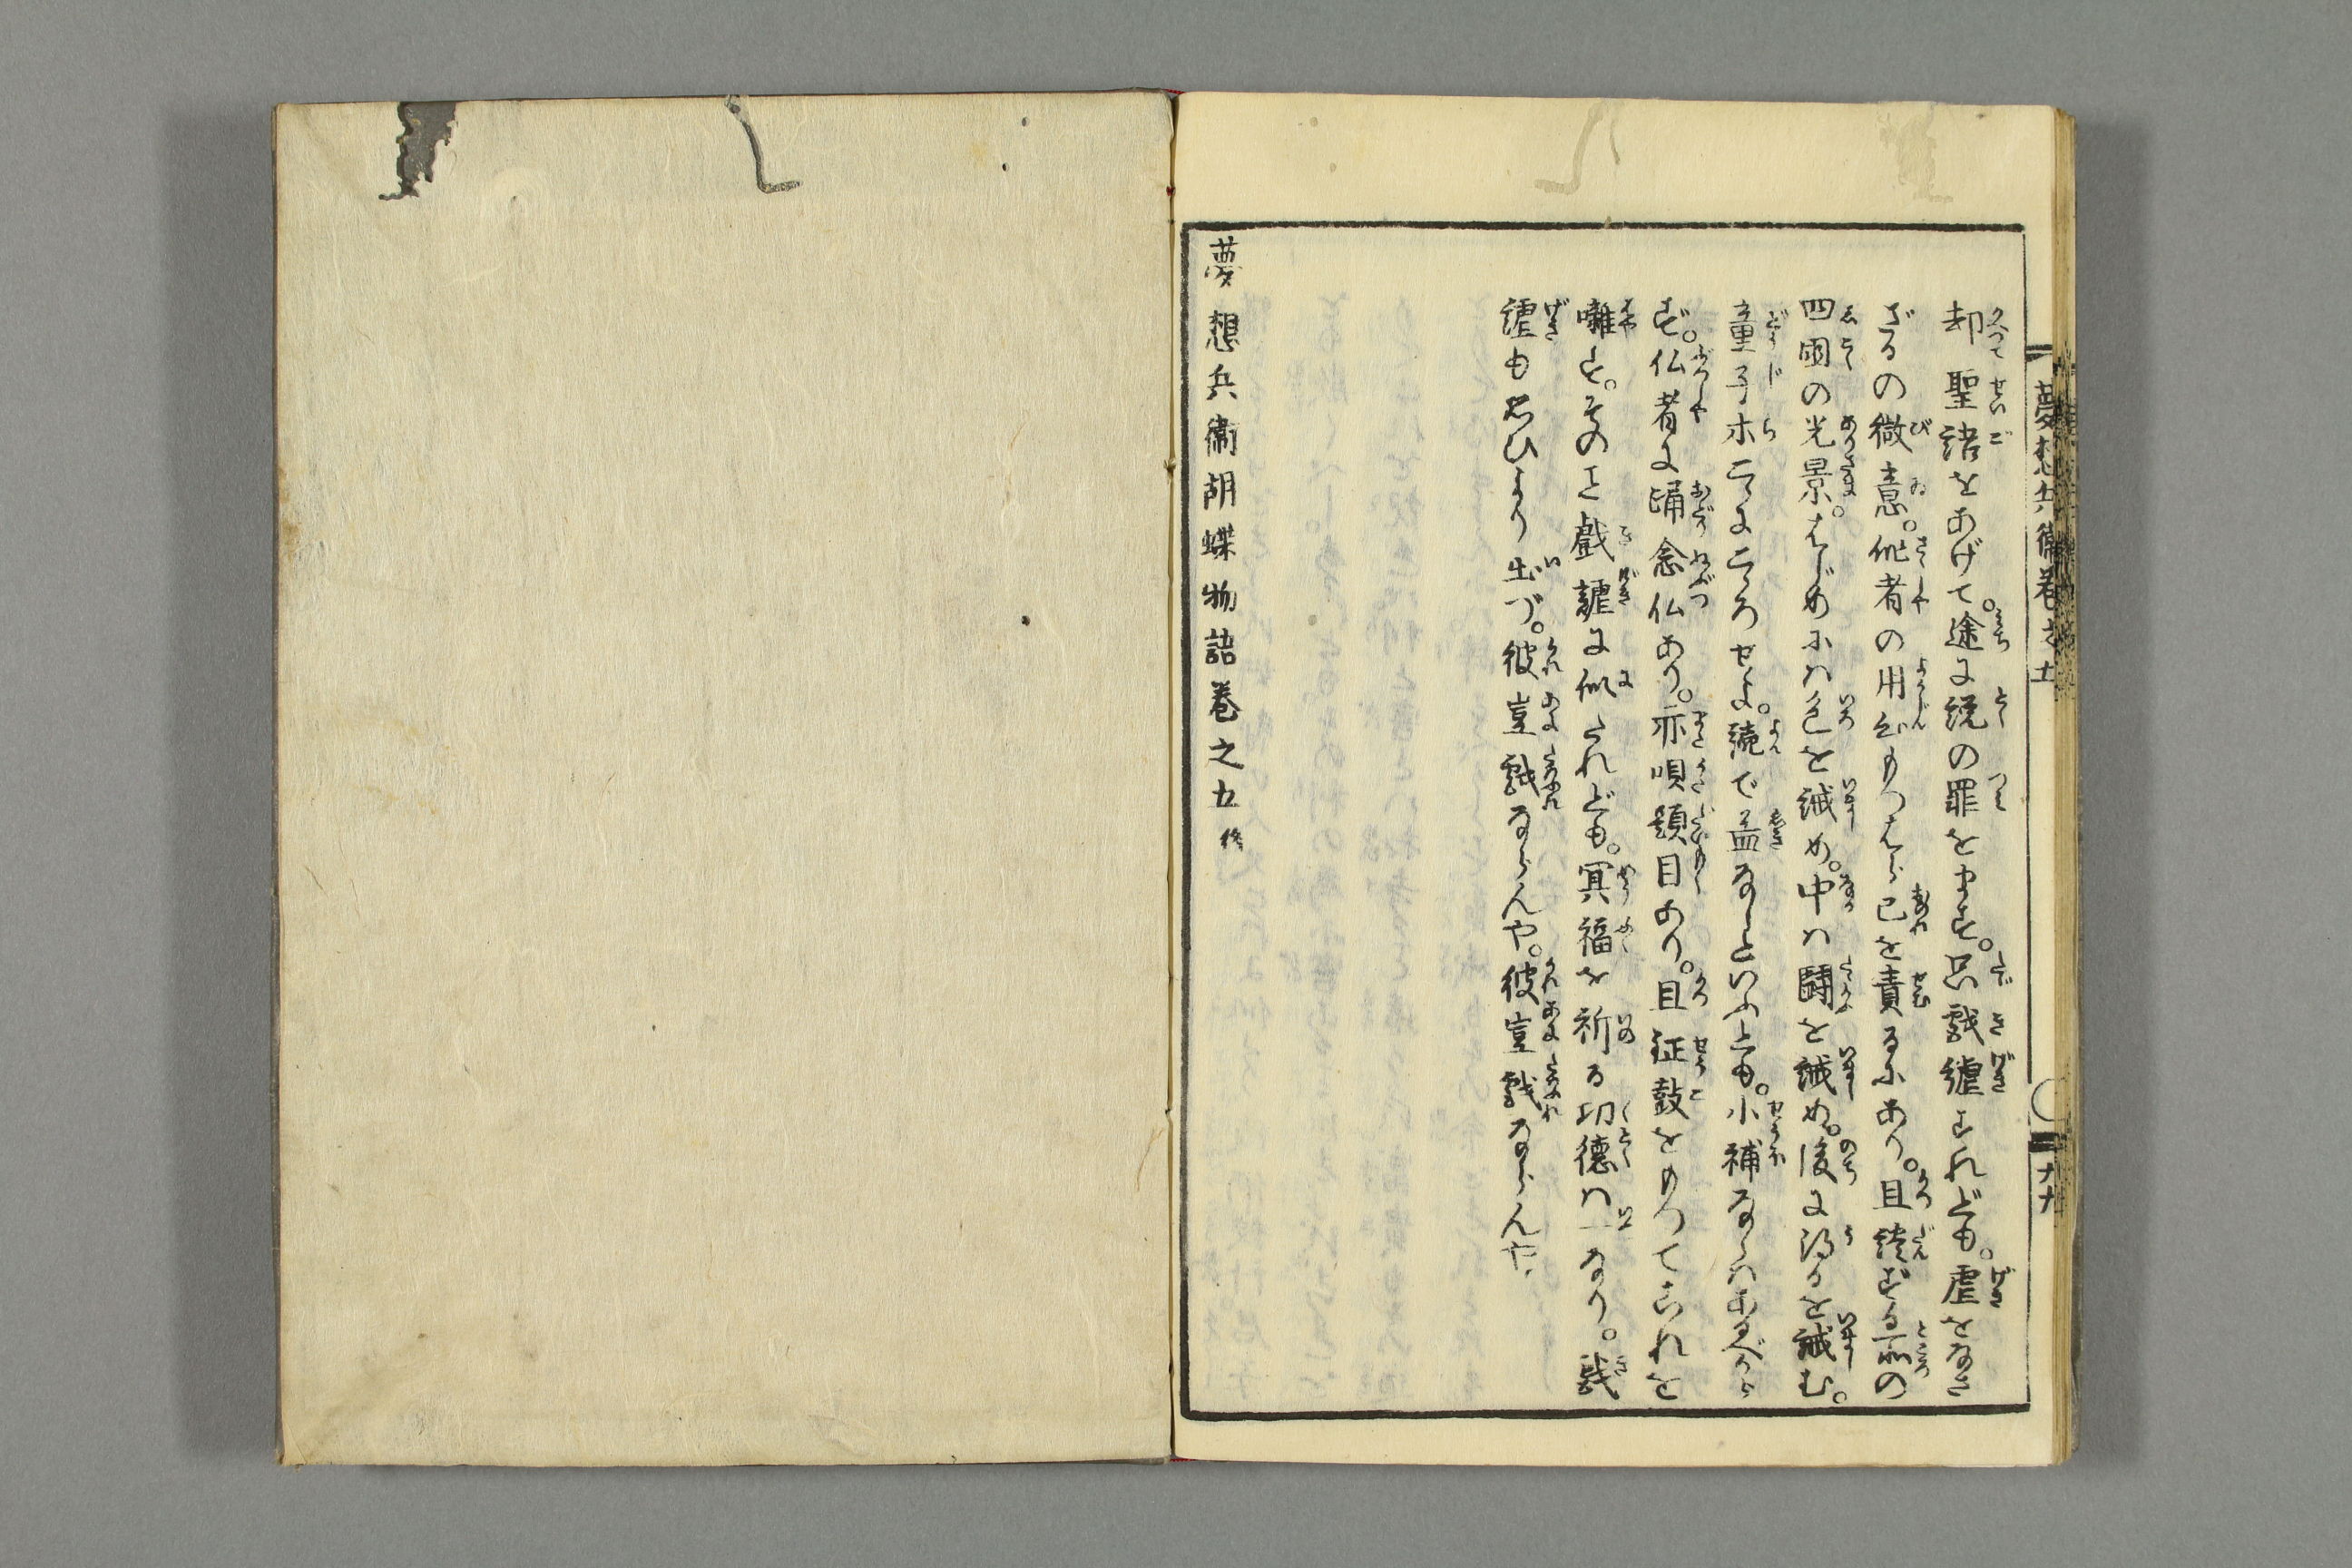 却聖語をあげて。途に説の罪をます。只戯謔すれども。虐をなさ
ざるの微意。作者の用心もつはら己を責るにあり。且談ずる所の
四国の光景。はじめにハ色を誡め。中ハ闘を誡め。後に得るを誡む。
童子ホこゝにこゝろせよ。読で益なしといふとも。小補なくハあるべから
ず。仏者に踊念仏あり。亦唄題目あり。且鉦鼓をもつてこれを
囃す。そのさま戯謔に似たれども。冥福を祈る功徳ハ一なり。戯
謔も思ひより出づ。彼豈戯ならんや。彼豈戯ならんや
夢想兵衛胡蝶物語巻之五終
夢想兵衛巻之五